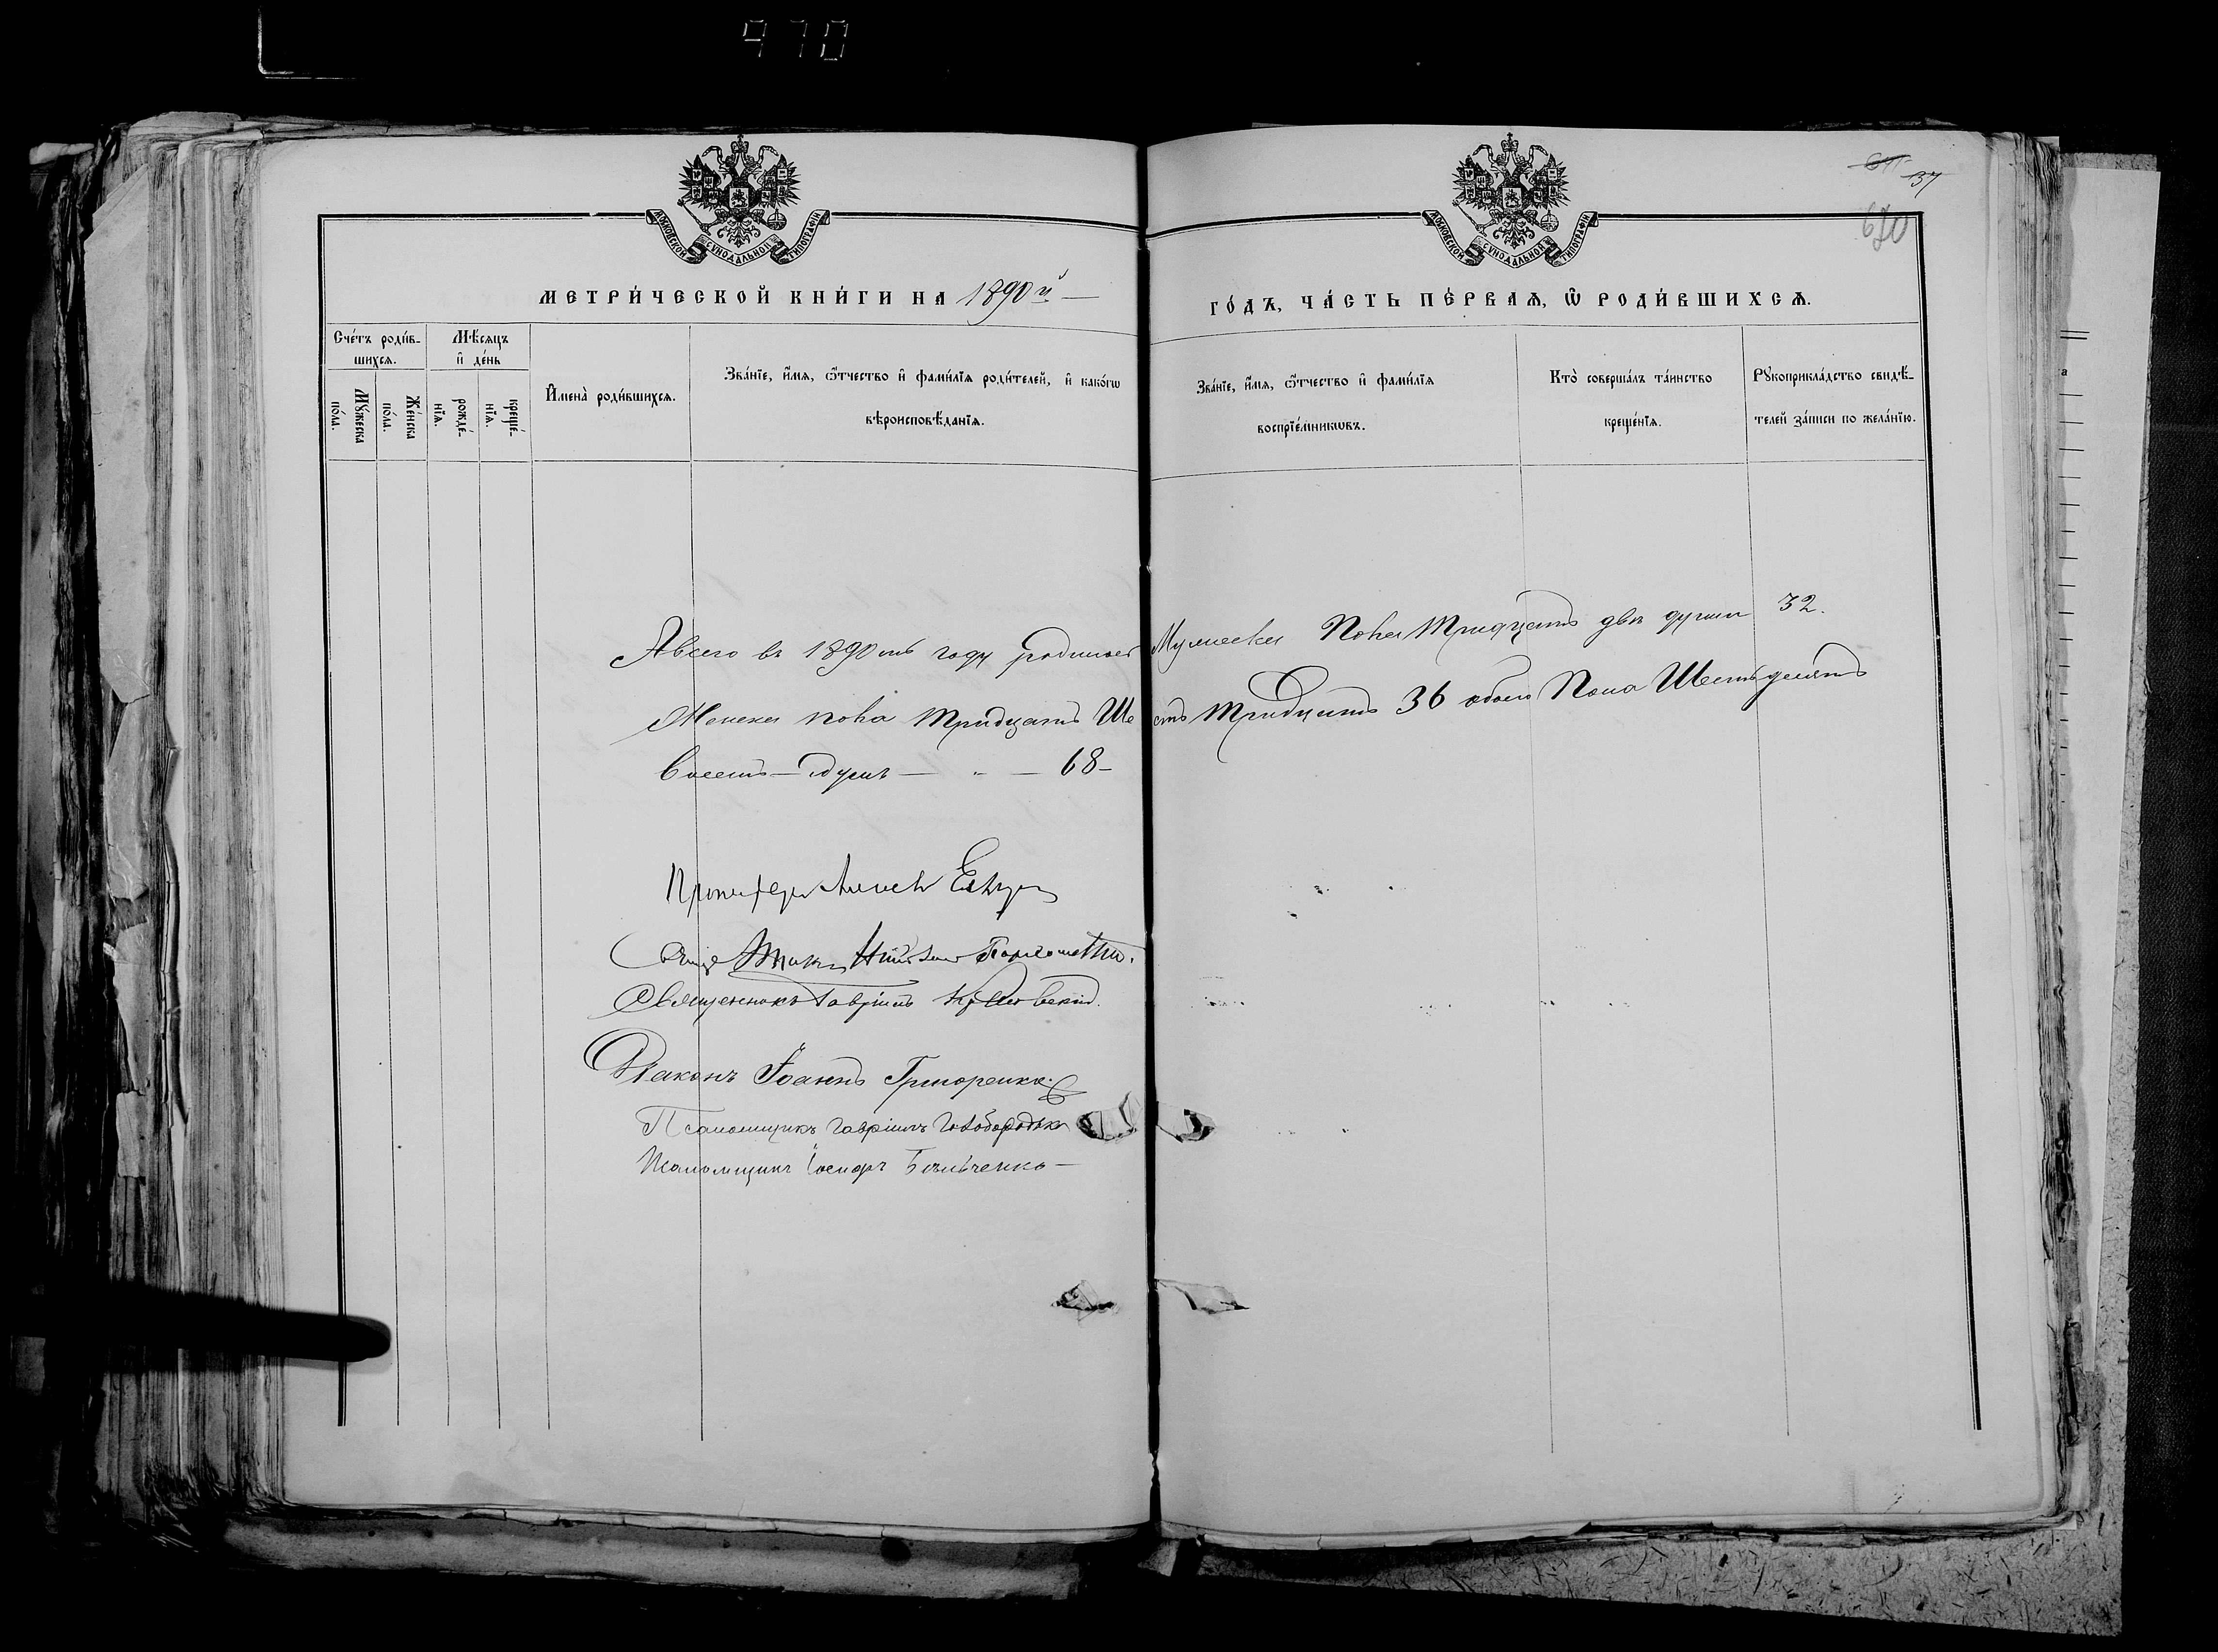 970
37
670
МОСКОВСКОЙ СѴНОДАЛЬНОЙ ТИПОГРАФІИ
МОСКОВСКОЙ СѴНОДАЛЬНОЙ ТИПОГРАФІИ
МЕТРИ́ЧЕСКОЙ КНИ́ГИ НА 1890й
ГО́ДЪ, ЧА́СТЬ ПЕ́РВАЯ, Ѡ҆ РОДИ́ВШИХСЯ.
Сче́тъ роди́в-
шихся.
Мѣ́сяцъ
и҆ де́нь
Мꙋ́жеска
по́ла.
Же́нска
по́ла.
рожде́-
нїя.
креще́-
нїя.
И҆мена̀ роди́вшихся.
Зва́нїе, и҆́мя, ѻ҆́тчество и҆ фами́лїя роди́телей, и҆ како́гѡ
вѣроисповѣ́данїя.
Зва́нїе, и҆́мя, ѻ҆́тчество и҆ фами́лїя
воспрїе́мникѡвъ.
Кто̀ соверша́лъ та́инство
креще́нїя.
Рꙋкоприкла́дство свидѣ́-
телей за́писи по жела́нїю.
А всего въ 1890мъ году родилось Мужеска Пола Тридцать две души 32.
Женска пола тридцать Шесть тридцать 36 обоего Пола Шестьдесятъ
Восемь — душъ — " — 68 —
Протоіерей Алексѣй
Священникъ Гавріилъ
Діаконъ Іоаннъ Григоренко
Псаломщикъ Гавріилъ Голобородько
Псаломщикъ Іосифъ Бѣльченко —